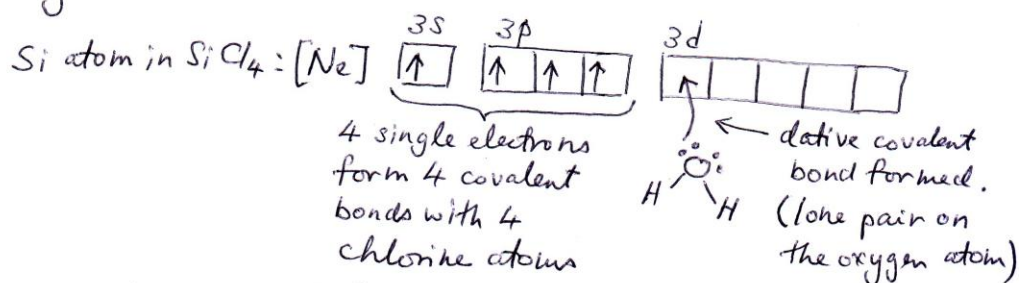 3s 3p 3d
Si atom in SiCl4 : [Ne] ↑ ↑ ↑ ↑
4 single electrons
form 4 covalent
bonds with 4
chlorine atoms
O
H H
dative covalent
bond formed.
(lone pair on
the oxygen atom)